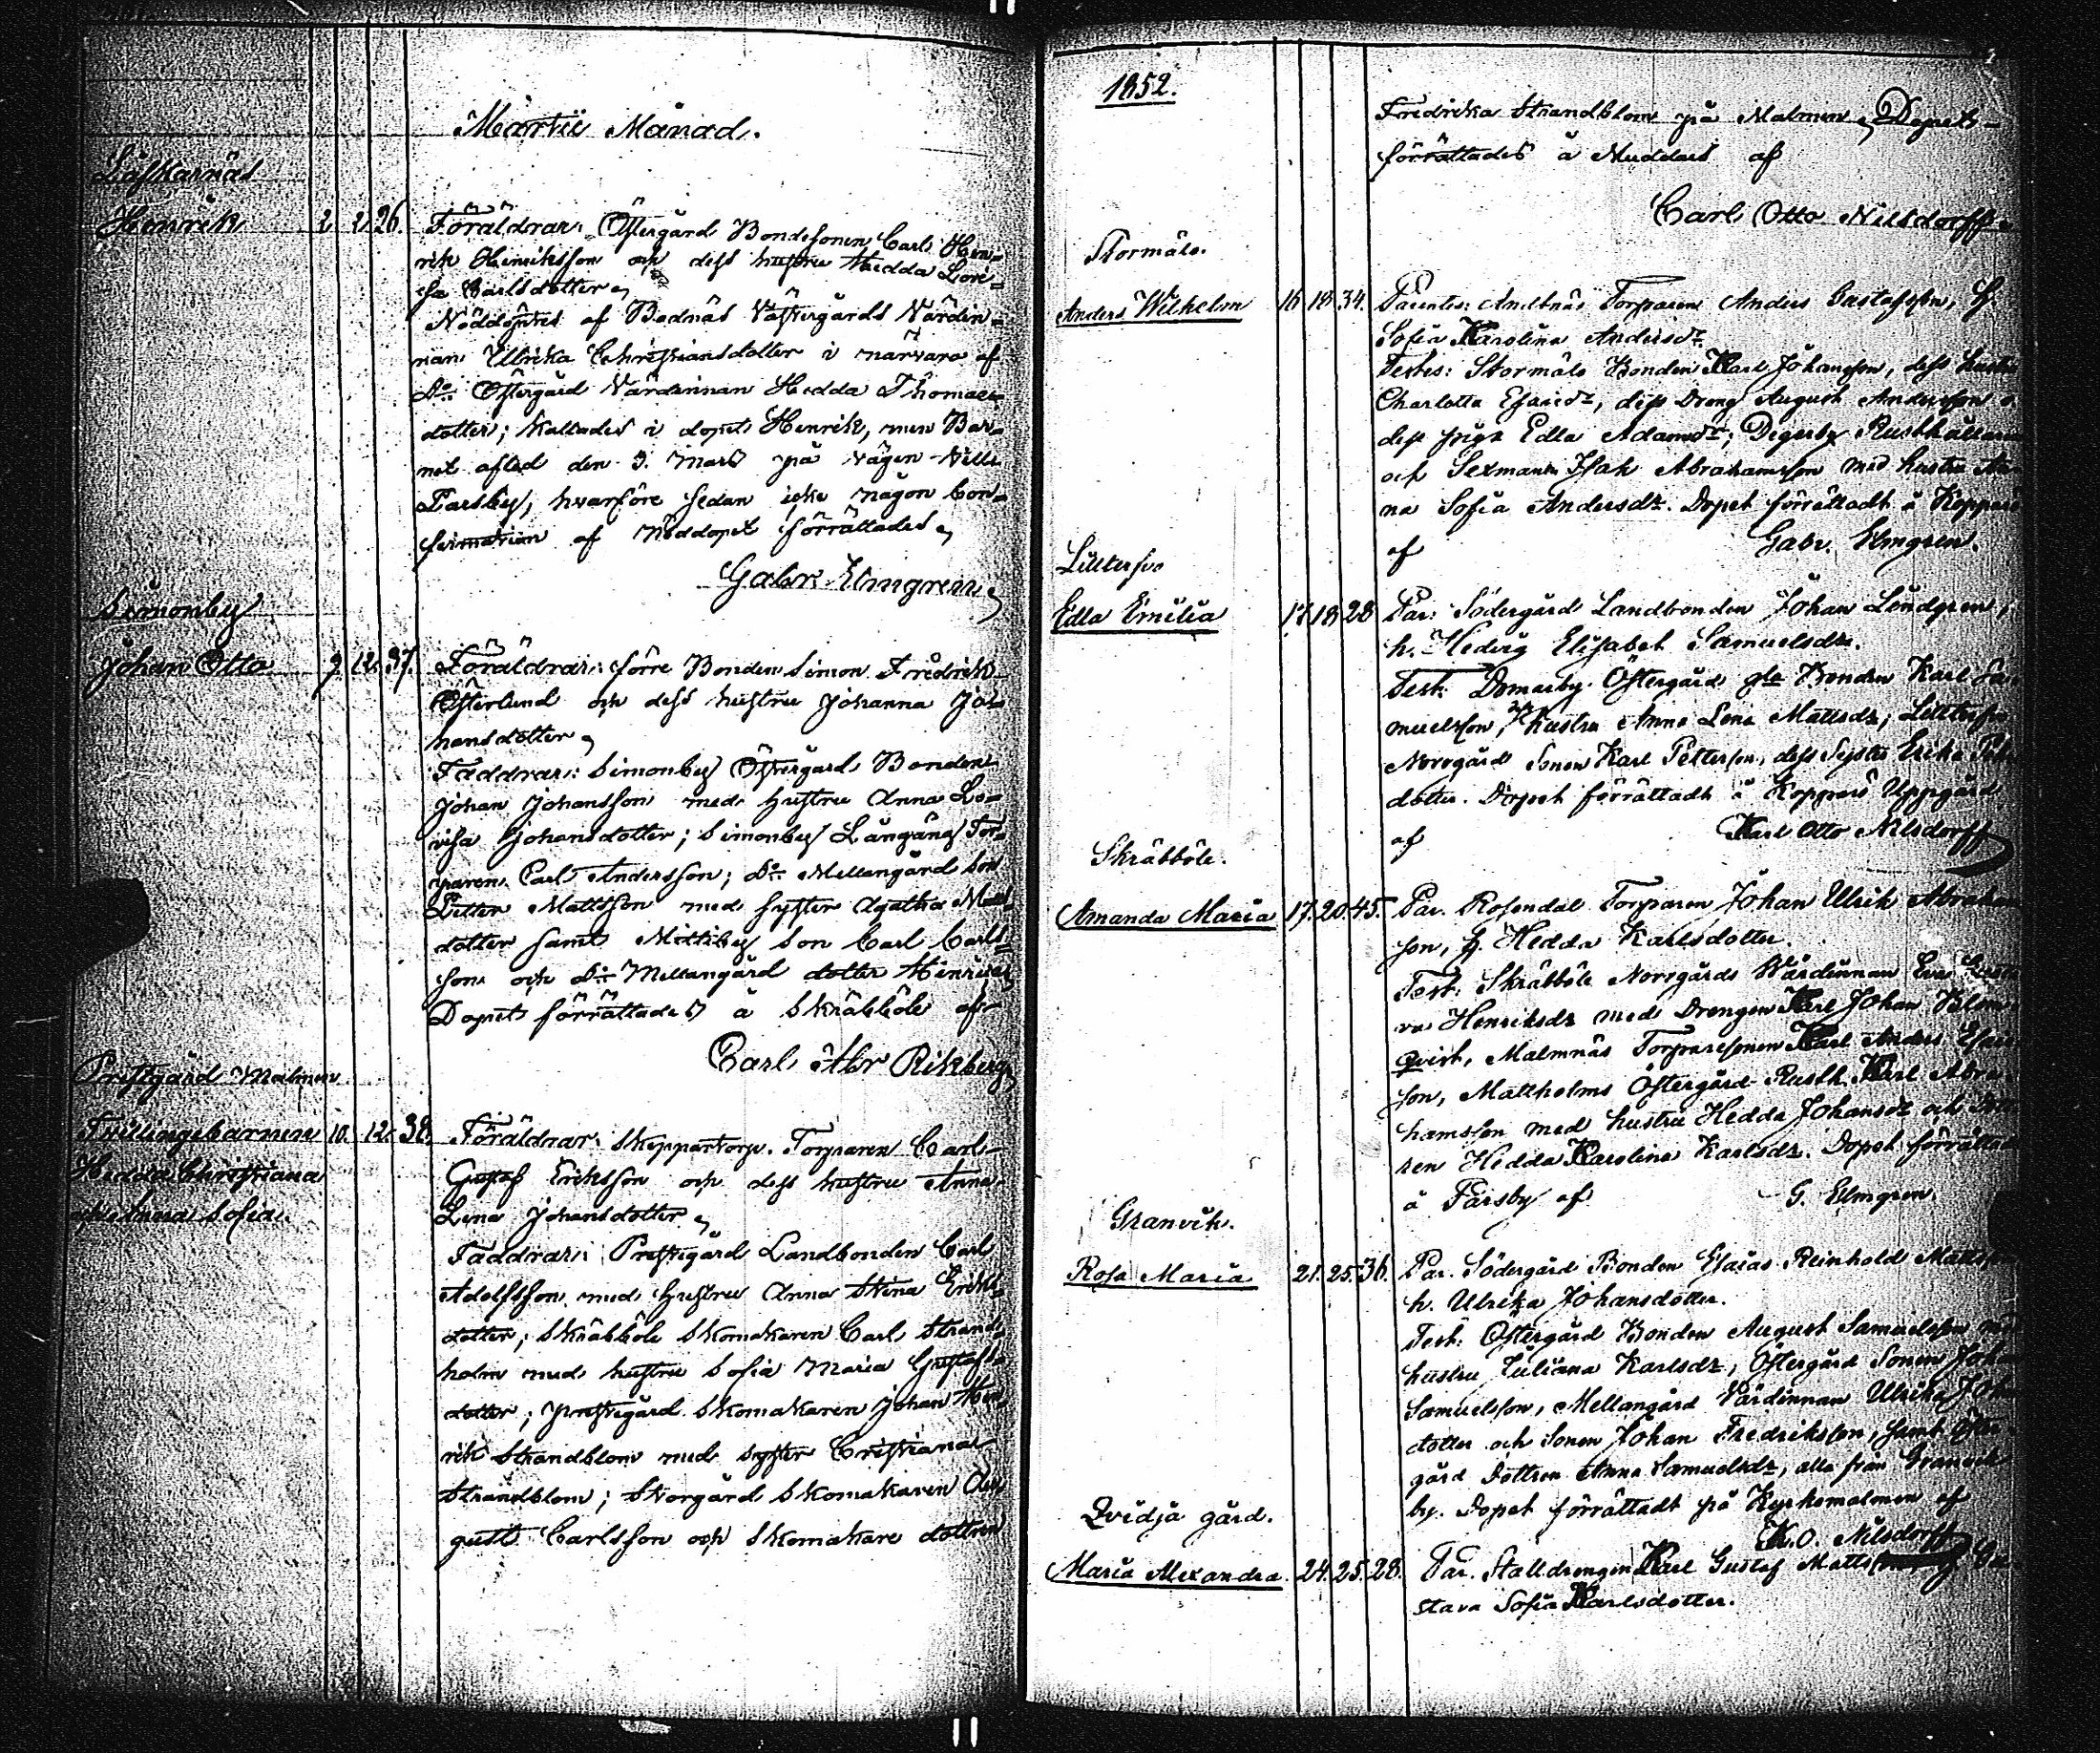 Martii Månad.
Löfskärnäs
Henrik 2. 2. 26. Föräldrar: Östergård Bondesonen Carl Hen-
rik Henriksson och dess hustru Hedda Lovi-
sa Carlsdotter,
Nöddöptes af Bodnäs Västergårds Värdin-
nan Ulrika Christiansdotter i närvaro af
D:o Östergård Värdinnan Hedda Thomas-
dotter; kallades i dopet Henrik, men Bar-
net afled den 3. Mars på vägen till
Parsby, hvarföre sedan icke någon Con-
firmation af Nöddopet förrättades,
Gabr. Elmgren
Simonby
Johan Otto 9. 12. 37. Föräldrar: förre Bonden Simon Fredrik
Österlund och dess hustru Johanna Jo-
hansdotter,
Faddrar: Simonby Östergård Bonden
Johan Johansson med hustru Anna Lo-
visa Johansdotter; Simonby Långäng Tor-
paren Carl Andersson; D:o Mellangård Son
Petter Mattsson med syster Agatha Matts-
dotter samt Mittiby Son Carl Carls-
son och D:o Mellangård dotter Henrica
Dopet förrättades å Skräbböle af
Carl Abr Rikberg
Prestgård Malmen
Tvillingebarnen 10. 12. 38. Föräldrar: Skeppartorp Torparen Carl
Hedda Christiana Gustaf Eriksson och dess hustru Anna
och Anna Sofia. Lena Johansdotter,
Faddrar: Prestgård Landbonden Carl
Adolfsson med hustru Anna Stina Eriks-
dotter; Skräbböle Skomakaren Carl Strand-
holm med hustru Sofia Maria Gustafs-
dotter; Prestegård Skomakaren Johan Hen-
rik Strandblom med syster Cristiana
Strandblom; Storgård Skomakaren Au-
gust Carlsson och Skomakare dottren
1852.
Fredrika Strandblom på Malmen, Dopets-
förrättades å Muddais af
Carl Otto Nilsdorff
Stormälö.
Anders Wilhelm 16 18 34. Parentes: Torparen Anders Gustafsson, H.
Sofia Karolina Andersdr
Testes: Stormälö Bonden Karl Johansson, dess hustru
Charlotta Esaiedr, dess Dreng August Andersson o.
dess piga Edla Adamsdr; Degerby Rusthållaren
och Sexmann Isak Abrahamsson med hustru An-
na Sofia Andersdr. Dopet förrättadt å
af Gabr. Elmgren.
Lilltersvo
Edla Emilia 17 18 28 Par: Södergård Landbonden Johan Lindgren,
h. Hedvig Elisabet Samuelsdr.
Test: Domarby Östergård gla Bonden Karl Sa-
muelsson, hustru Anna Lena Mattsdr; Lilltersvo
Norrgård Sonen Karl Pettersson, dess Syster Erika
dotter. Dopet förrättadt å Kopparö Uppgård
af Karl Otto Nilsdorff
Skräbböle.
Amanda Maria 17. 20. 45. Par. Rosendal Torparen Johan Ulrik Abraham-
son, H. Hedda Karlsdotter.
Test: Skräbböle Norrgårds Wärdinnan Eva
Henriksdr med Drengen Karl Johan Blom-
qvist, Malmnäs Torparesonen Karl Anders Esaies-
son, Mattholms Östergård Rusth. Karl Abra-
hamsson med hustru Hedda Johansdr och
ren Hedda Karolina Karlsdr. Dopet förrättadt
å Parsby af G. Elmgren.
Granvik.
Rosa Maria 21. 25. 36. Par. Södergård Bonden Esaias Reinhold Mattsson
h. Ulrika Johansdotter.
Test: Östergård Bonden August Samuelsson med
hustru Juliana Karlsdr, Östergård Sonen Johan
Samuelsson, Mellangård Värdinnan Ulrika
dotter och Sonen Johan Fredriksson, samt
gård Dottren Anna Samuelsdr, alla från Granvik
by. Dopet förrättadt på Kyrkomalmen af
K. O. Nilsdorff
Qvidja gård.
Maria Alexandra. 24. 25. 28. Par. Stalldrengen Karl Gustaf Mattsson Gu-
stava Sofia Karlsdotter.